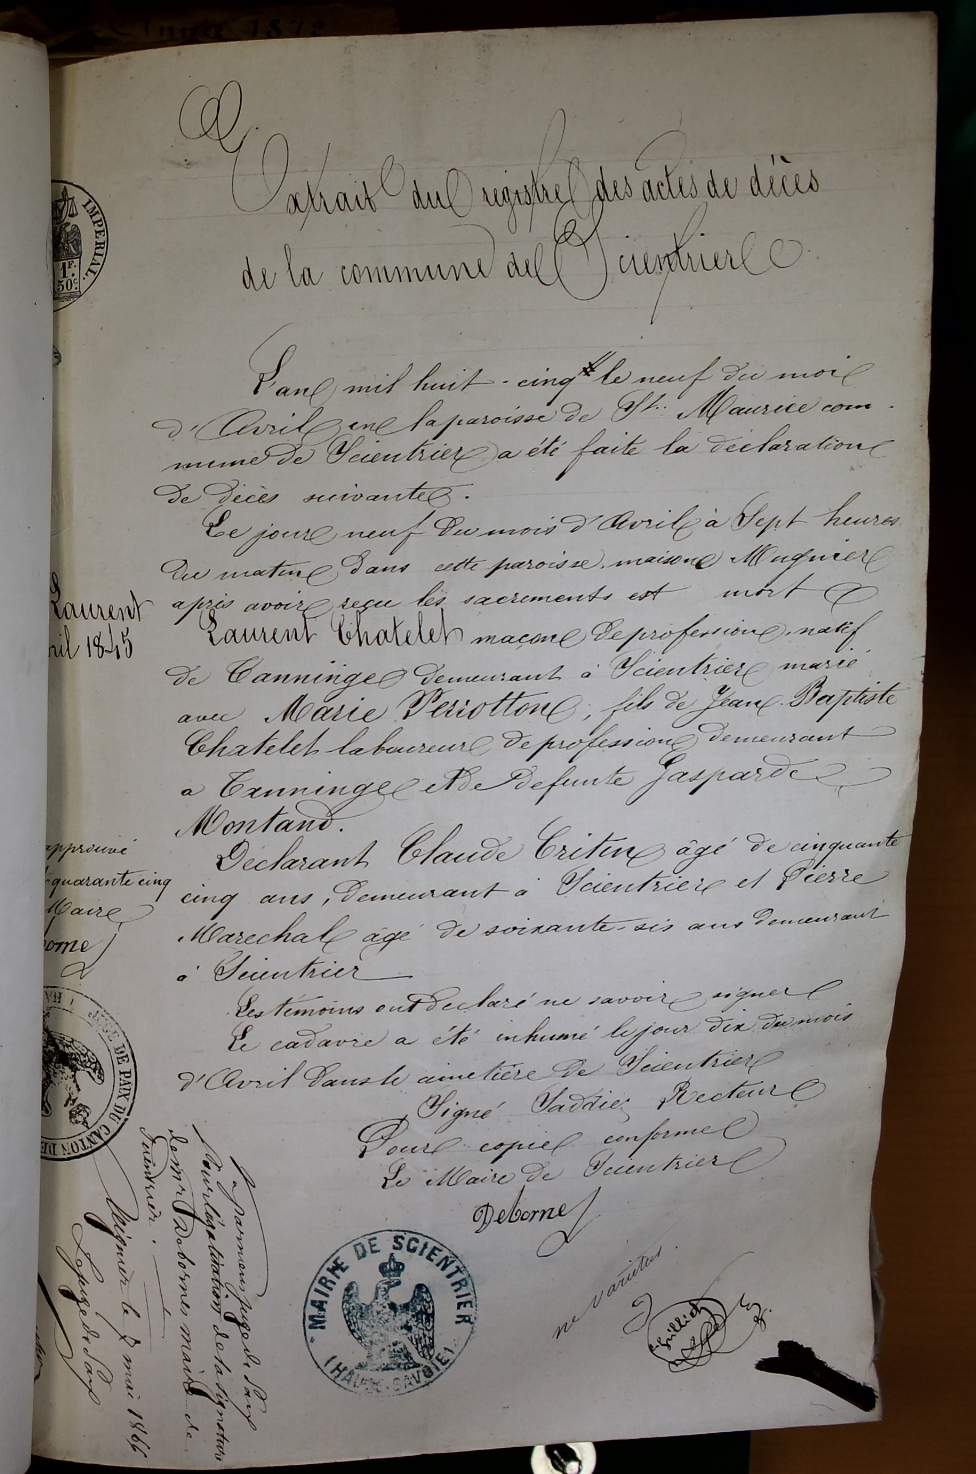 Année 1872
Extrait du registre des actes de décès
de la commune de Scientrier
IMPERIAL.
1F.
50c
L'an mil huit-cinq le neuf du mois
d'Avril en la paroisse de St. Maurice com-
mune de Scientrier a été faite la déclaration
de décès suivante.
Le jour neuf du mois d'Avril à Sept heures
du matin dans cette paroisse maison Mugnier
après avoir reçu les sacrements est mort
Laurent Chatelet maçon de profession, natif
de Tanninge demeurant à Scientrier marié
avec Marie Perrotton, fils de Jean-Baptiste
Chatelet laboureur de profession demeurant
a Tanninge et de defunte Gasparde
Montand.
Déclarant Claude Critin âgé de cinquante
cinq ans, demeurant à Scientrier et Pierre
Marechal âgé de soixante-sis ans demeurant
à Scientrier
Les témoins ont declaré ne savoir signer
Le cadavre a été inhumé le jour dix du mois
d'Avril dans le cimetière de Scientrier
Signé Saddie, Recteur
Pour copie conforme
Le Maire de Scientrier
Deborne
Laurent
ril 1845
approuvé
quarante cinq
Maire
orne
JGE. DE PAIX DU CANTON DE
juge de Paix
pour légalisation de la signature
de mr Debornes maire de
Scientrier.
Reignier le 7 mai 1866
Le juge de Paix
MAIRIE DE SCIENTRIER
(HAUTE-SAVOIE).
ne varietur.